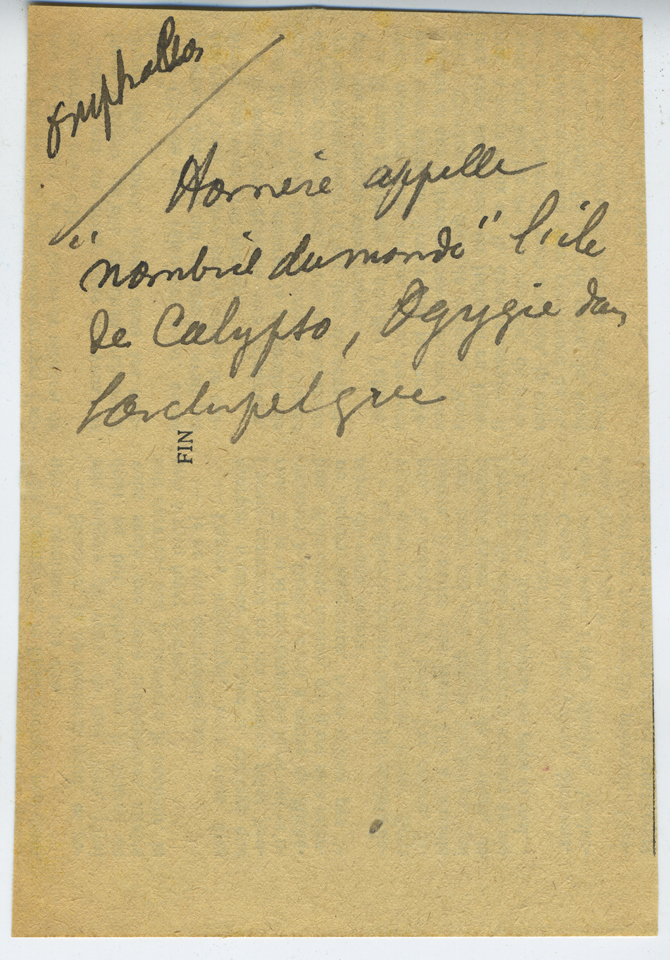 omphallos
Homère appelle
"nombril du monde" l'île
de Calypso, Ogygie dans
l'archipel grec
FIN